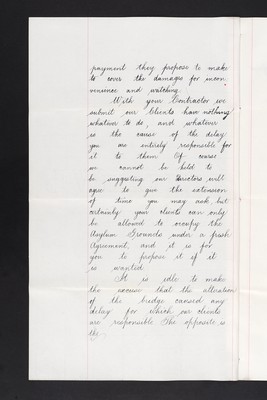 payment they propose to make
to cover the damages for incon
venience and watching.
With your Contractor we
submit our Clients have nothing
whatever to do, and whatever
is the cause of the delay
you are entirely responsible for
it to them. Of course
we cannot be held to
be suggesting our Directors will
agree to give the extension
of time you may ask, but
certainly your clients can only
be allowed to occupy the
Asylum Grounds under a fresh
Agreement, and it is for
you to propose it if it
is wanted.
It is idle to make
the excuse that the alteration
of the bridge caused any
delay for which our clients
are responsible. The opposite is
the